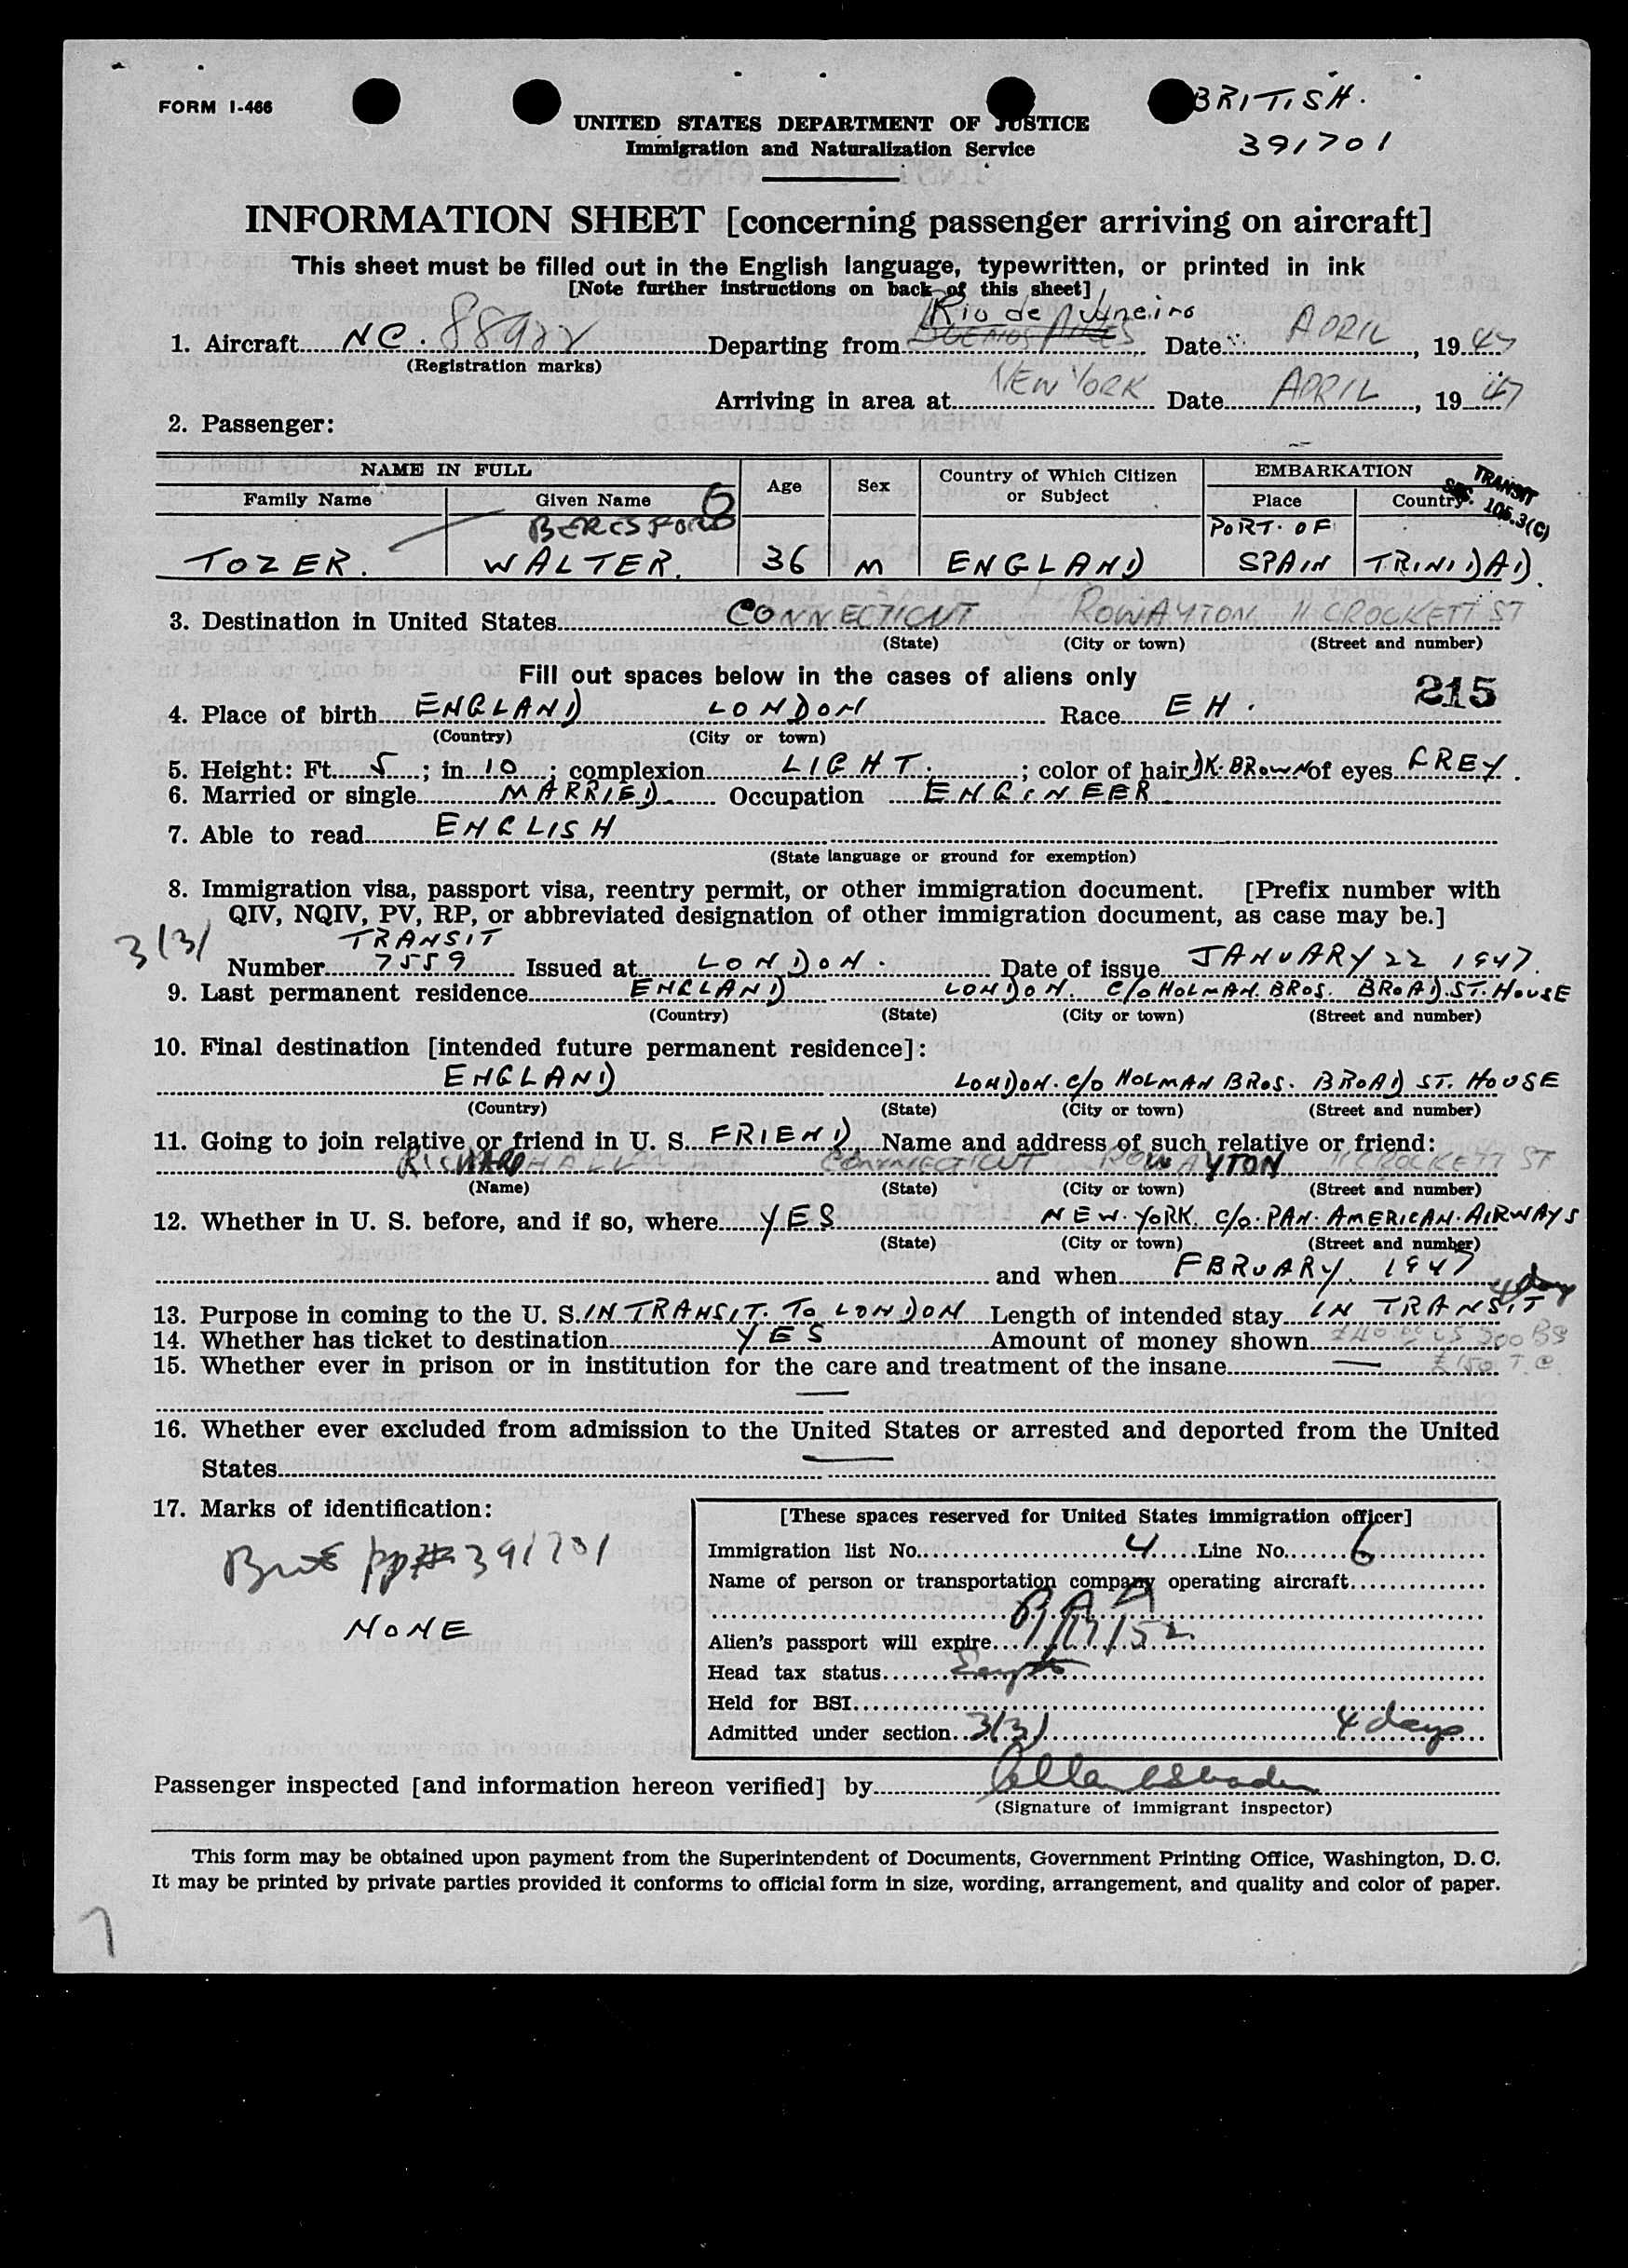 FORM I-466
BRITISH.
391701
UNITED STATES DEPARTMENT OF JUSTICE
Immigration and Naturalization Service
INFORMATION SHEET [concerning passenger arriving on aircraft]
This sheet must be filled out in the English language, typewritten, or printed in ink
[Note further instructions on back of this sheet]
Rio de Janeiro
1. Aircraft NC. Departing from BUENOS AIRES Date APRIL, 1947
(Registration marks)
Arriving in area at NEW YORK Date APRIL, 1947
2. Passenger:
NAME IN FULL Age Sex Country of Which Citizen or Subject EMBARKATION
Family Name Given Name Place Country
TRANSIT
SEC. 105.3(C)
6
BERESFORD PORT. OF
TOZER. WALTER. 36 M ENGLAND SPAIN TRINIDAD.
3. Destination in United States CONNECTICUT ROWAYTON 11 CROCKETT ST
(State) (City or town) (Street and number)
Fill out spaces below in the cases of aliens only
215
4. Place of birth ENGLAND LONDON Race EH.
(Country) (City or town)
5. Height: Ft. 5; in. 10; complexion LIGHT.; color of hair DK. BROWN of eyes GREY.
6. Married or single MARRIED Occupation ENGINEER
7. Able to read ENGLISH
(State language or ground for exemption)
8. Immigration visa, passport visa, reentry permit, or other immigration document. [Prefix number with
QIV, NQIV, PV, RP, or abbreviated designation of other immigration document, as case may be.]
3(3)
TRANSIT
Number 7559 Issued at LONDON. Date of issue JANUARY 22 1947.
9. Last permanent residence ENGLAND LONDON. C/O HOLMAN. BROS. BROAD. ST. HOUSE
(Country) (State) (City or town) (Street and number)
10. Final destination [intended future permanent residence]:
ENGLAND LONDON. C/O HOLMAN BROS. BROAD ST. HOUSE
(Country) (State) (City or town) (Street and number)
11. Going to join relative or friend in U. S. FRIEND Name and address of such relative or friend:
RICHARD HALL CONNECTICUT ROWAYTON 11 CROCKETT ST
(Name) (State) (City or town) (Street and number)
12. Whether in U. S. before, and if so, where YES NEW. YORK. C/O. PAN. AMERICAN. AIRWAYS
(State) (City or town) (Street and number)
and when FBRUARY. 1947
4 days
13. Purpose in coming to the U. S. IN TRANSIT. TO LONDON Length of intended stay IN TRANSIT
14. Whether has ticket to destination YES Amount of money shown
15. Whether ever in prison or in institution for the care and treatment of the insane —
—
16. Whether ever excluded from admission to the United States or arrested and deported from the United
States —
17. Marks of identification:
Brit pp# 391701
NONE
[These spaces reserved for United States immigration officer]
Immigration list No. 4 Line No. 6
Name of person or transportation company operating aircraft
PAA
Alien's passport will expire 1/17/52
Head tax status
Held for BSI
Admitted under section 3(3) 4 days
Passenger inspected [and information hereon verified] by
(Signature of immigrant inspector)
This form may be obtained upon payment from the Superintendent of Documents, Government Printing Office, Washington, D. C.
It may be printed by private parties provided it conforms to official form in size, wording, arrangement, and quality and color of paper.
7